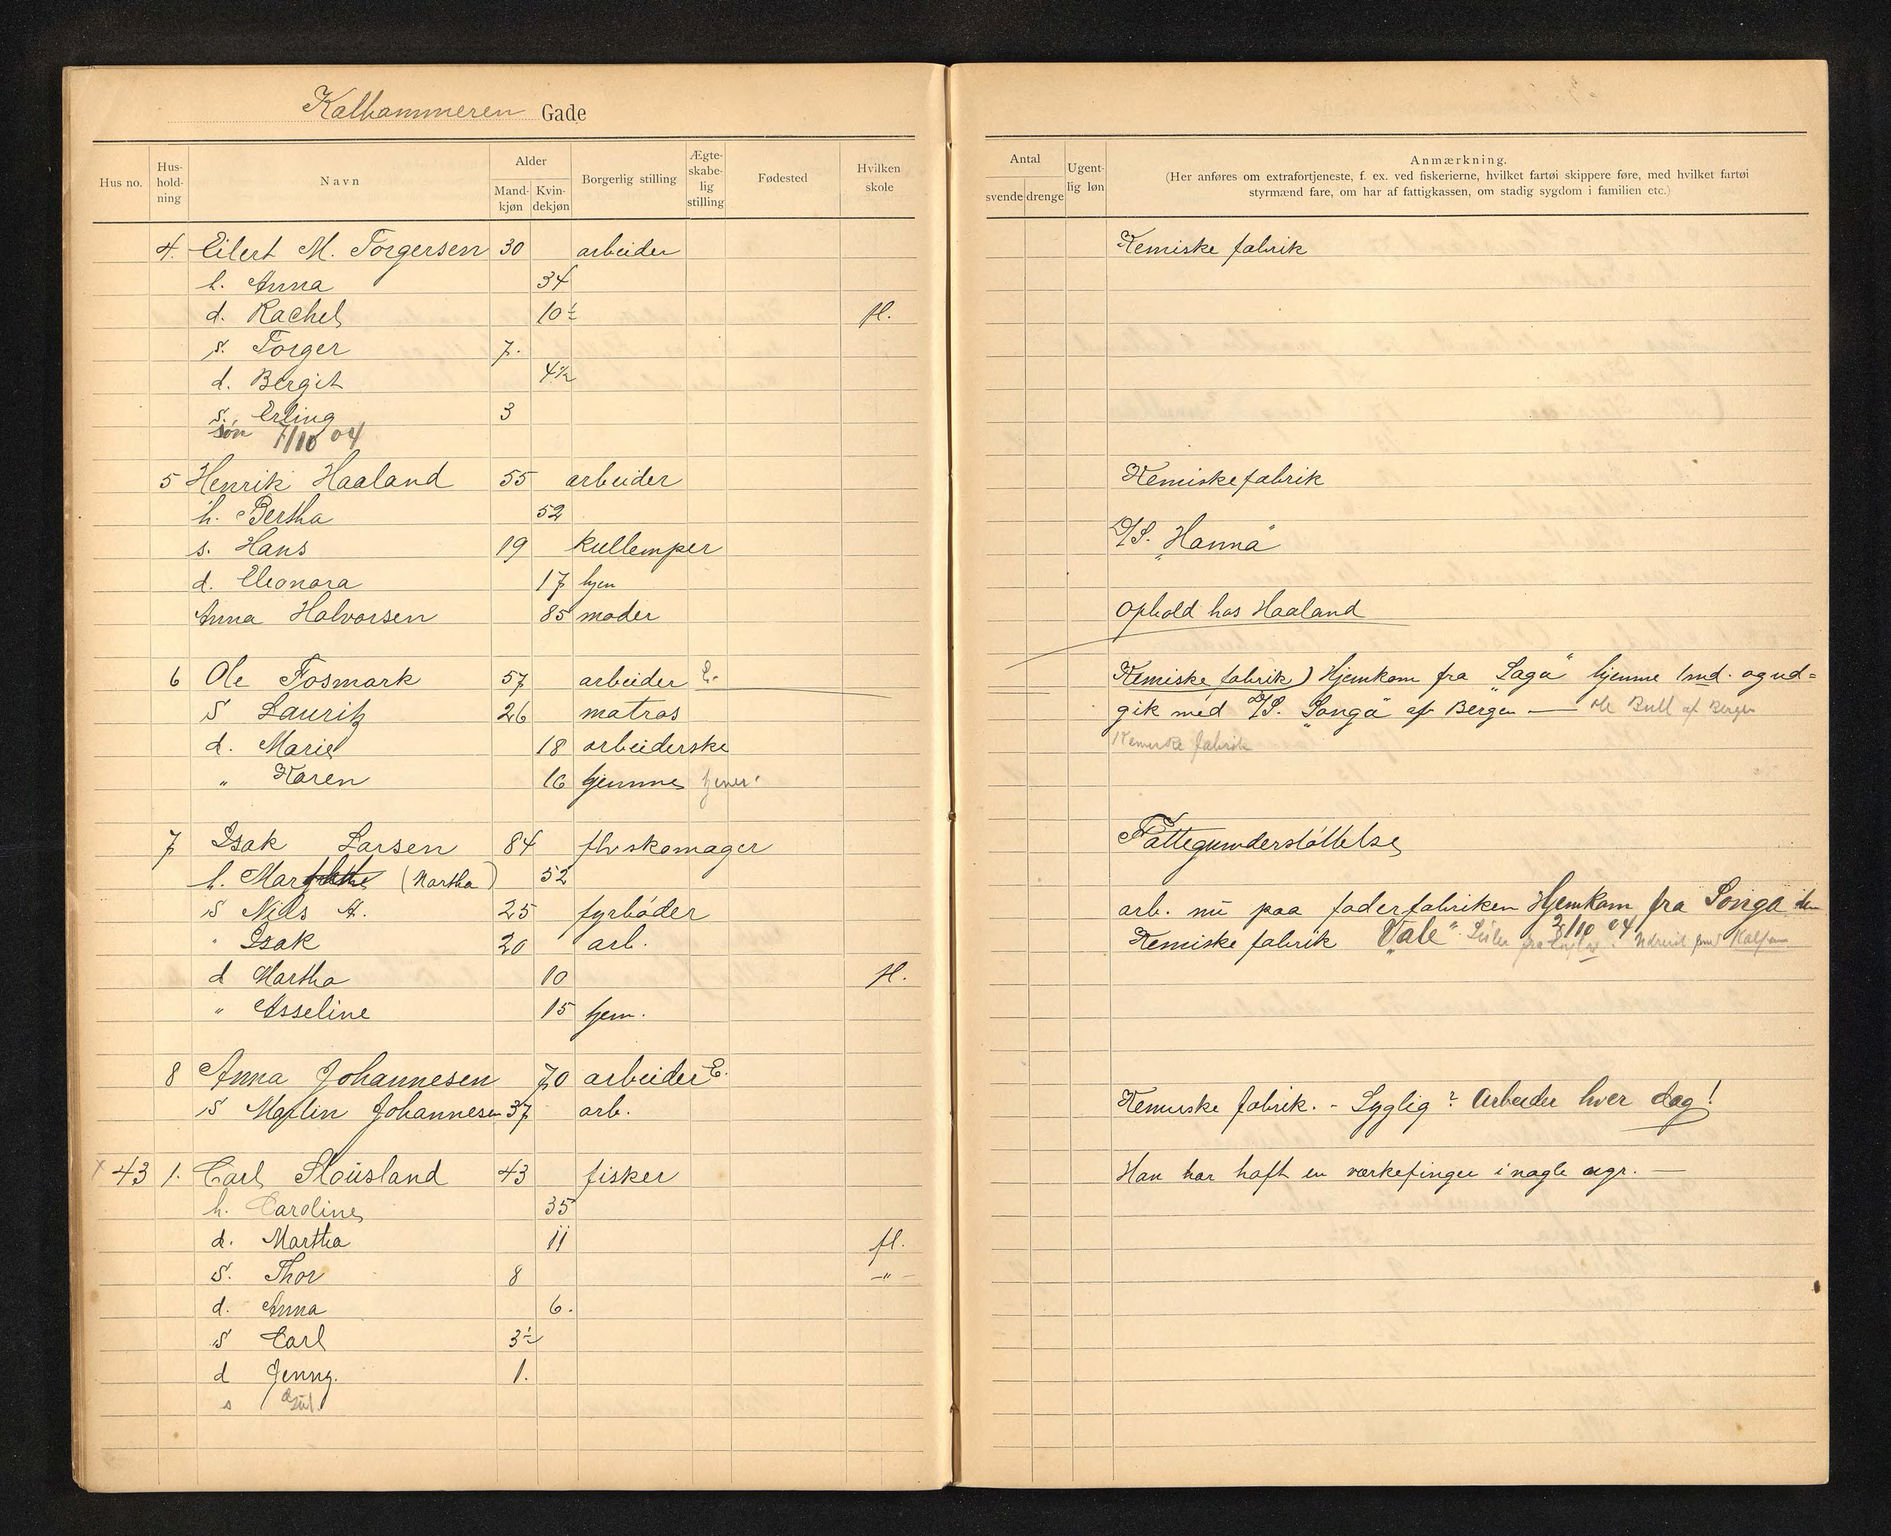 Kalhammeren Gade
Hus no. Hus-hold-ning Navn Alder Mand-kjøn Kvin-dekjøn Borgerlig stilling Ægte-skabe-lig stilling Fødested Hvilken skole
Antal svende drenge Ugent-lig løn Anmærkning.
(Her anføres om extrafortjeneste, f. ex. ved fiskerierne, hvilket fartøi skippere føre, med hvilket fartøi
styrmænd fare, om har af fattigkassen, om stadig sygdom i familien etc.)
4. Eilert M. Torgersen 30 arbeider Kemiske fabrik
h. Anna 34
d. Rachel 10½ fl.
s. Torger 7.
d. Bergit 4½
s. Erling 3
søn 7/10 04
5 Henrik Haaland 55 arbeider Kemiske fabrik
h. Bertha 52
s. Hans 19 kullemper D/S. "Hanna"
d. Eleonora 17 hjem
Anna Halvorsen 85 moder Ophold hos Haaland
6 Ole Fosmark 57 arbeider E. Kemiske fabrik) Hjemkom fra "Saga" hjemme 1 md. og ud=
S Lauritz 26 matros gik med D/S. "Songa" af Bergen — Ole Bull af Bergen
d. Marie 18 arbeiderske Kemiske fabrik
" Karen 16 hjemme tjener
7 Isak Larsen 84 fhv skomager Fattigunderstøttelse
h. (Martha) 52
S Nils A. 25 fyrbøder arb. nu paa foderfabriken Hjemkom fra Songa den 2/10 04
" Isak 20 arb. Kemiske fabrik "Vale"
d Martha 10 fl.
" Asseline 15 hjem.
8 Anna Johannesen 70 arbeider E.
S Martin Johannesen 37 arb. Kemiske fabrik. - Syglig? Arbeider hver dag!
x 43 1. Carl Stousland 43 fisker Han har haft en værkefinger i nogle ugr. —
h. Caroline 35
d. Martha 11 fl.
S. Thor 8 -"-
d. Anna 6.
S Carl 3½
d Jenny. 1.
s